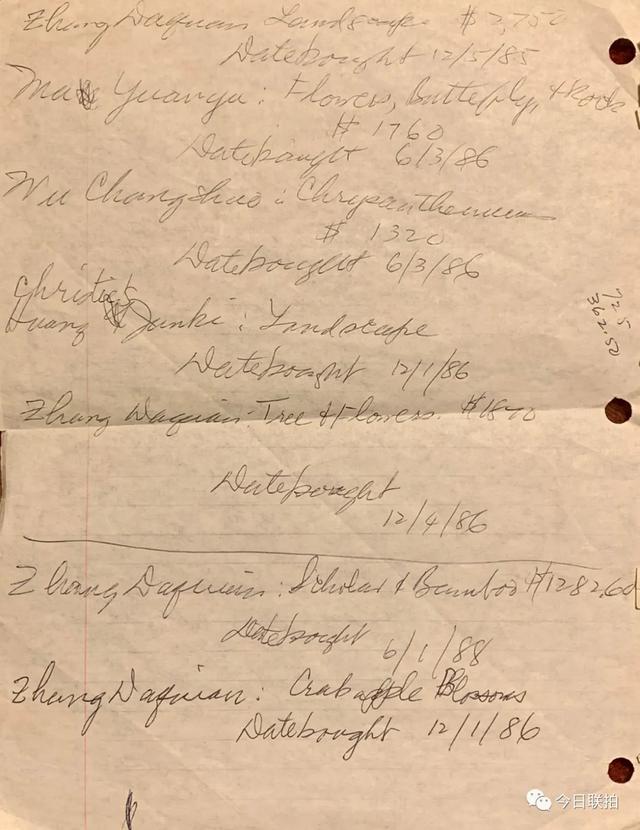 Zhang Daquian Landscape $2,750
Datebought 12/5/85
Ma Yuanyu: Flowers, Butterfly, + Rock
$1760
Datebought 6/3/86
Wu Changshuo: Chrysanthemum
$1320
Datebought 6/3/86
Christie's
Huang Junbi: Landscape
Datebought 12/1/86
Zhang Daquian: Tree + Flowers. $1870
Datebought
12/4/86
Zhang Daquian: Scholar + Bamboo $1282.60
Datebought
6/1/88
Zhang Daquian: Crabapple Blossoms
Datebought 12/1/86
72 5
362.50
今日联拍